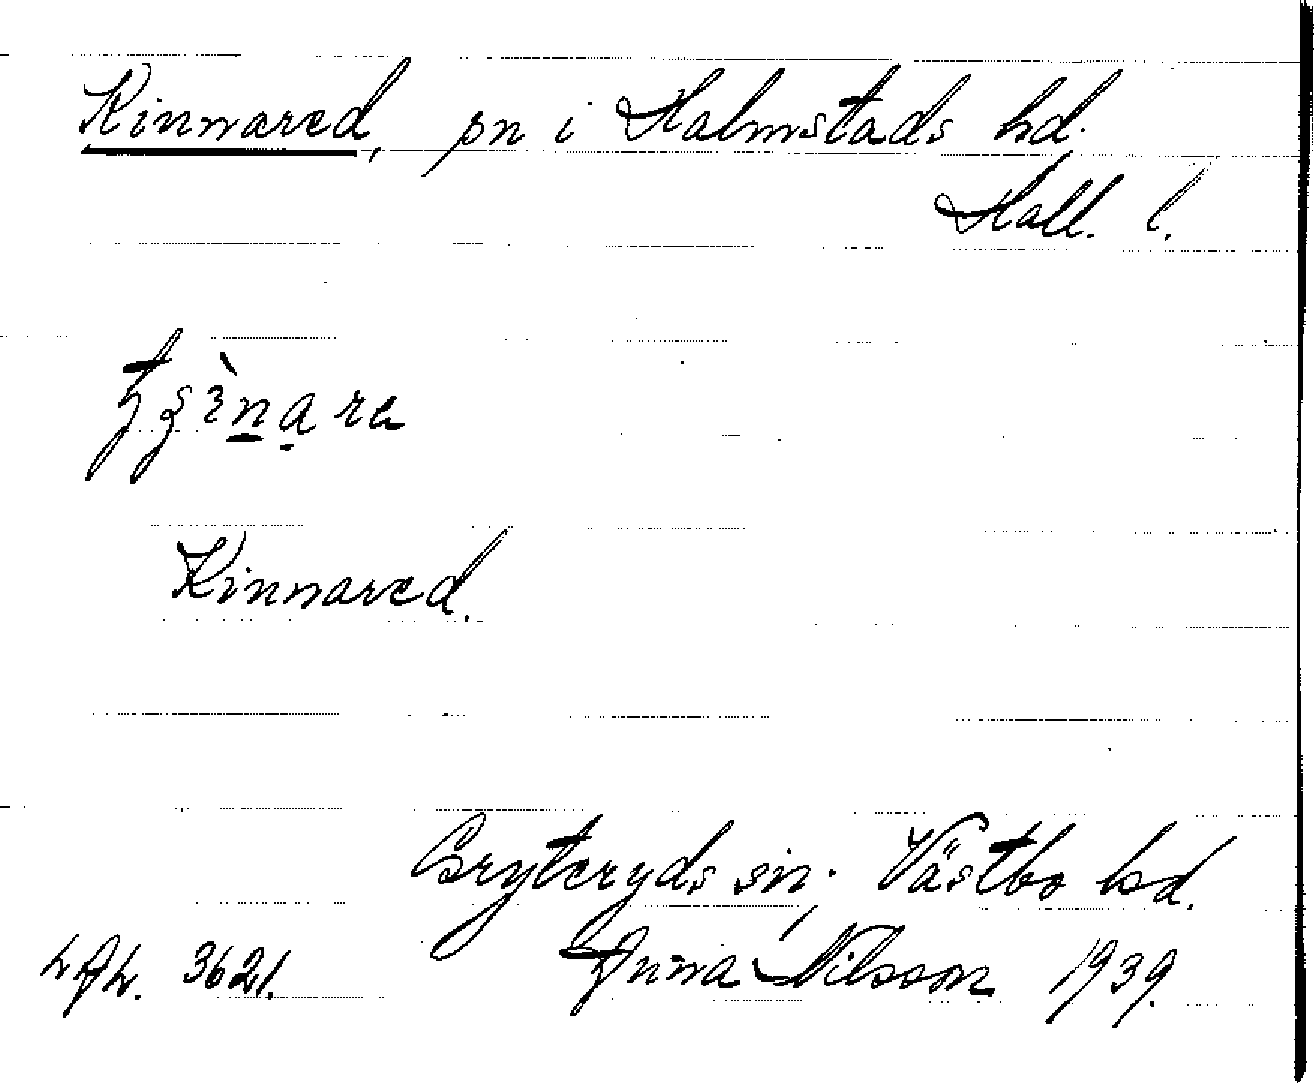 Kinnared, sn i Halmstads hd.
Hall. l.
Kinnared.
Gryteryds sn. Västbo hd.
3621. Anna Nilsson 1939.